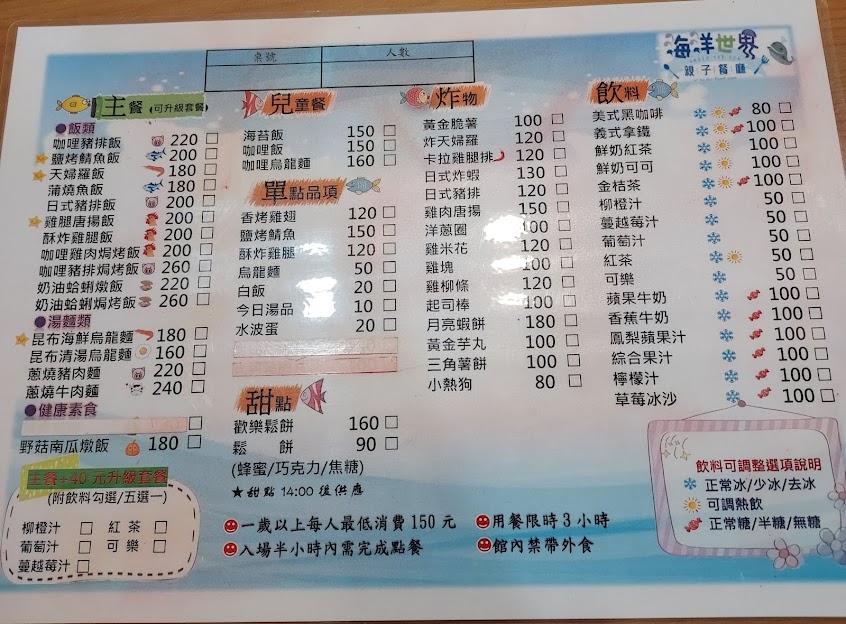 桌號 人數
海洋世界
親子餐廳
主餐(可升級套餐)
●飯類
咖哩豬排飯 220
鹽烤鯖魚飯 200
天婦羅飯 180
蒲燒魚飯 180
日式豬排飯 200
雞腿唐揚飯 200
酥炸雞腿飯 200
咖哩雞肉焗烤飯 200
咖哩豬排焗烤飯 260
奶油蛤蜊燉飯 220
奶油蛤蜊焗烤飯 260
●湯麵類
昆布海鮮烏龍麵 180
昆布清湯烏龍麵 160
蔥燒豬肉麵 220
蔥燒牛肉麵 240
●健康素食
野菇南瓜燉飯 180
主餐+40 元升級套餐
(附飲料勾選/五選一)
柳橙汁 紅茶
葡萄汁 可樂
蔓越莓汁
兒童餐
海苔飯 150
咖哩飯 150
咖哩烏龍麵 160
單點品項
香烤雞翅 120
鹽烤鯖魚 150
酥炸雞腿 120
烏龍麵 50
白飯 20
今日湯品 10
水波蛋 20
甜點
歡樂鬆餅 160
鬆餅 90
(蜂蜜/巧克力/焦糖)
★甜點 14:00 後供應
炸物
黃金脆薯 100
炸天婦羅 120
卡拉雞腿排 120
日式炸蝦 130
日式豬排 120
雞肉唐揚 150
洋蔥圈 100
雞米花 120
雞塊 100
雞柳條 120
起司棒 100
月亮蝦餅 180
黃金芋丸 100
三角薯餅 100
小熱狗 80
飲料
美式黑咖啡 80
義式拿鐵 100
鮮奶紅茶 100
鮮奶可可 100
金桔茶 100
柳橙汁 50
蔓越莓汁 50
葡萄汁 50
紅茶 50
可樂 50
蘋果牛奶 100
香蕉牛奶 100
鳳梨蘋果汁 100
綜合果汁 100
檸檬汁 100
草莓冰沙 100
飲料可調整選項說明
正常冰/少冰/去冰
可調熱飲
正常糖/半糖/無糖
一歲以上每人最低消費 150 元
用餐限時 3 小時
入場半小時內需完成點餐
館內禁帶外食